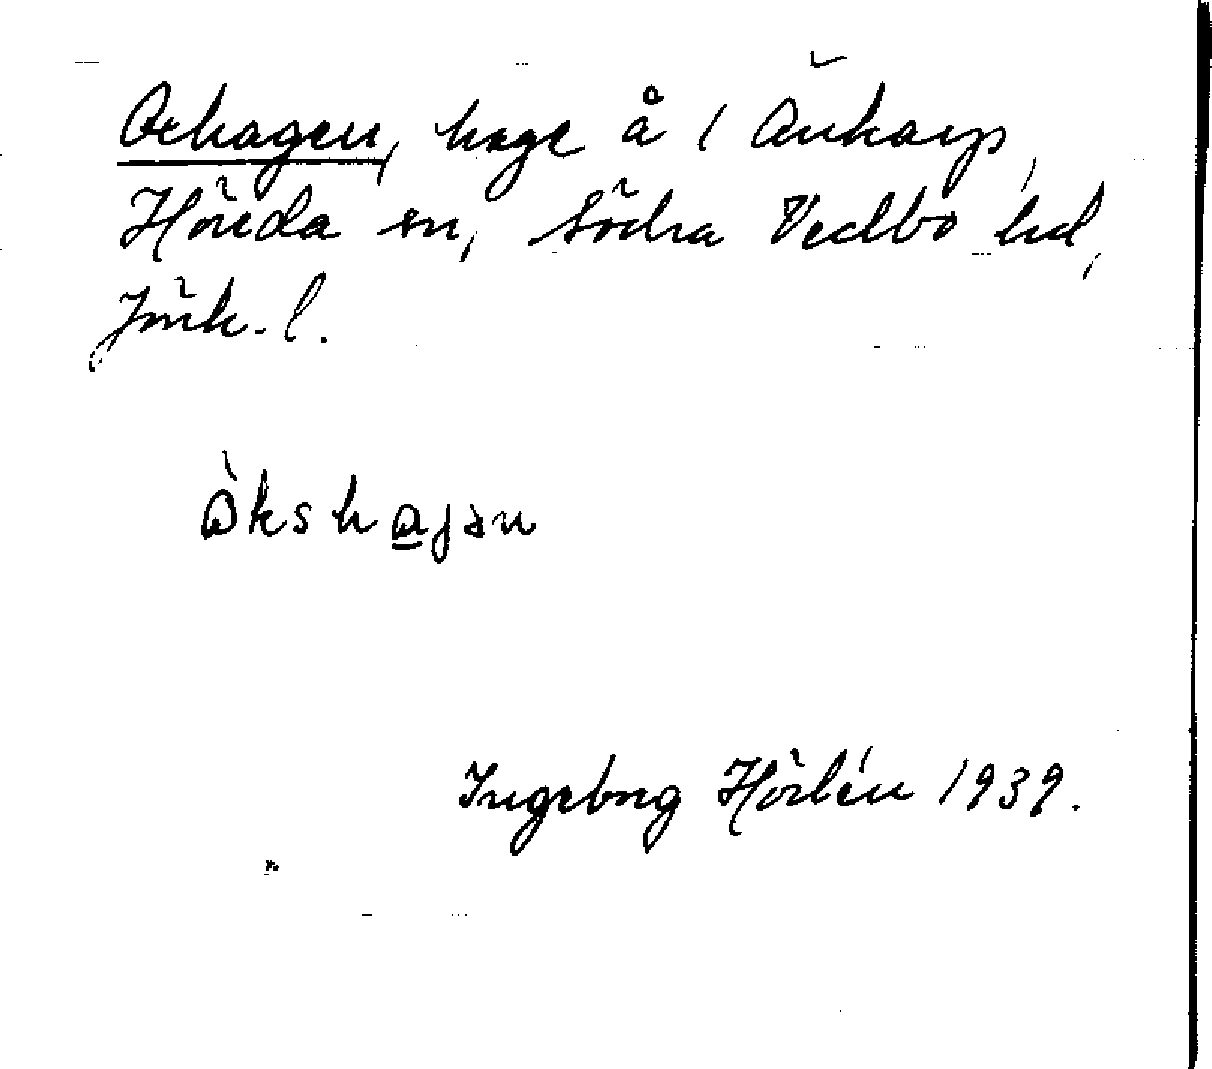 Oxhagen, hage å 1 Änkarp,
Höreda sn, Södra Vedbo hd,
Jönk. l.
òkshajən
Ingeborg Hörlén 1939.